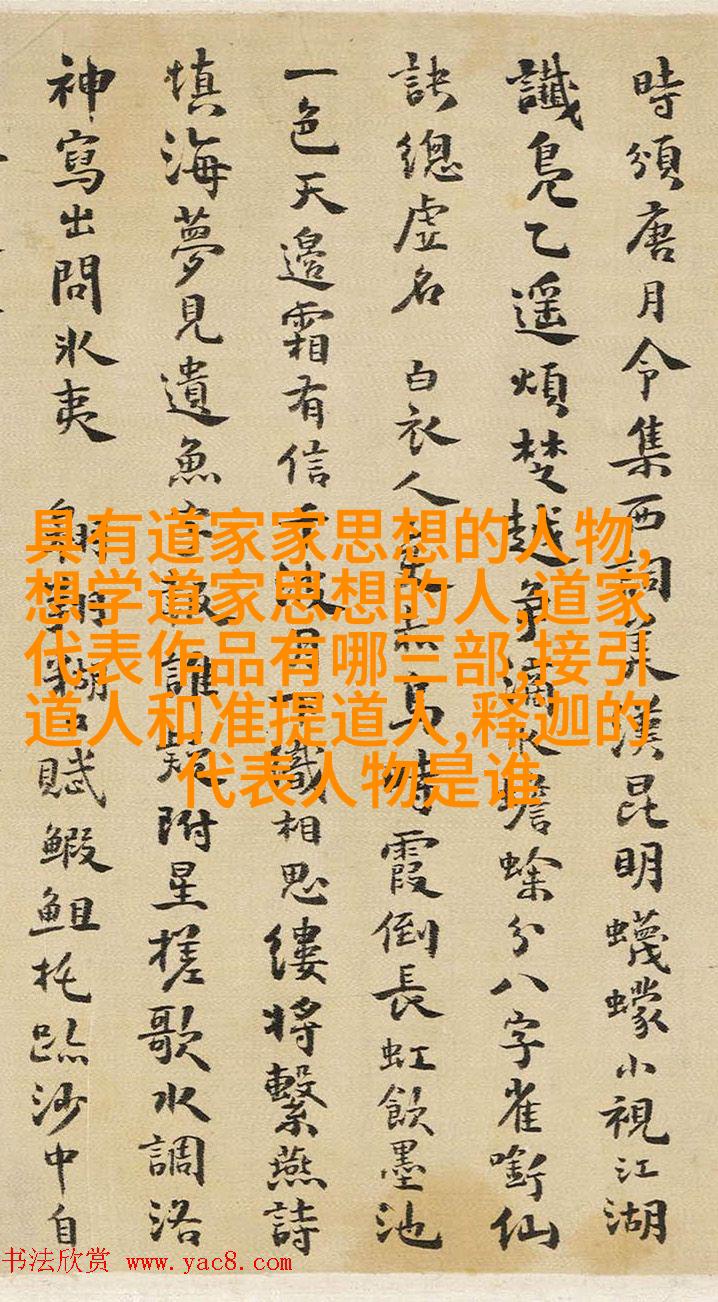 時頒唐月令集西詞美漢昆明蠛蠓小視江湖
讖鳧乙遥煩楚越爭滴蟾蜍分八字雀銜仙
訣總虚名 白衣人高霞倒長虹飲墨池
一色天邊霜有信織相思縷將繫燕詩
填海夢見遺魚字誰疑附星槎歌水調洛
神寫出問氷夷 湖賦鰕鉏托跡沙中自
具有道家家思想的人物,
想学道家思想的人,道家
代表作品有哪三部,接引
道人和准提道人,释迦的
代表人物是谁
书法欣赏 www.yac8.com